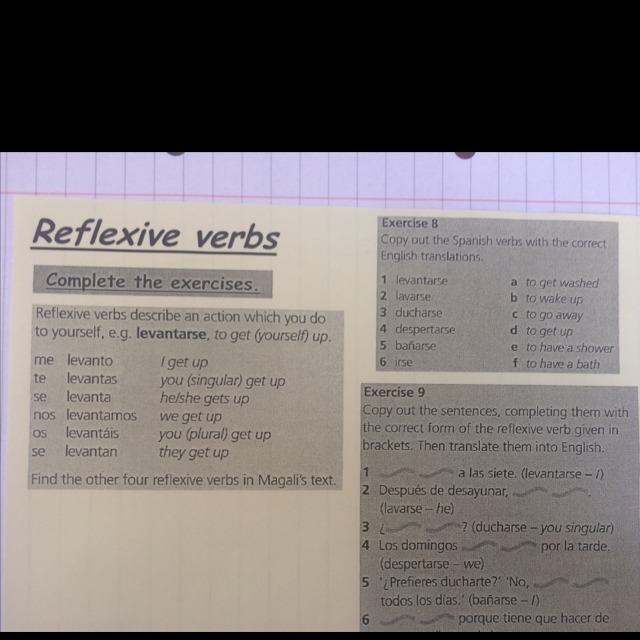 Reflexive verbs
Complete the exercises.
Reflexive verbs describe an action which you do
to yourself, e.g. levantarse, to get (yourself) up.
me levanto I get up
te levantas you (singular) get up
se levanta he/she gets up
nos levantamos we get up
os levantáis you (plural) get up
se levantan they get up
Find the other four reflexive verbs in Magali's text.
Exercise 8
Copy out the Spanish verbs with the correct
English translations.
1 levantarse a to get washed
2 lavarse b to wake up
3 ducharse c to go away
4 despertarse d to get up
5 bañarse e to have a shower
6 irse f to have a bath
Exercise 9
Copy out the sentences, completing them with
the correct form of the reflexive verb given in
brackets. Then translate them into English.
1 a las siete. (levantarse – I)
2 Después de desayunar, .
(lavarse – he)
3 ¿ ? (ducharse – you singular)
4 Los domingos por la tarde.
(despertarse – we)
5 '¿Prefieres ducharte?' 'No,
todos los días.' (bañarse – I)
6 porque tiene que hacer de